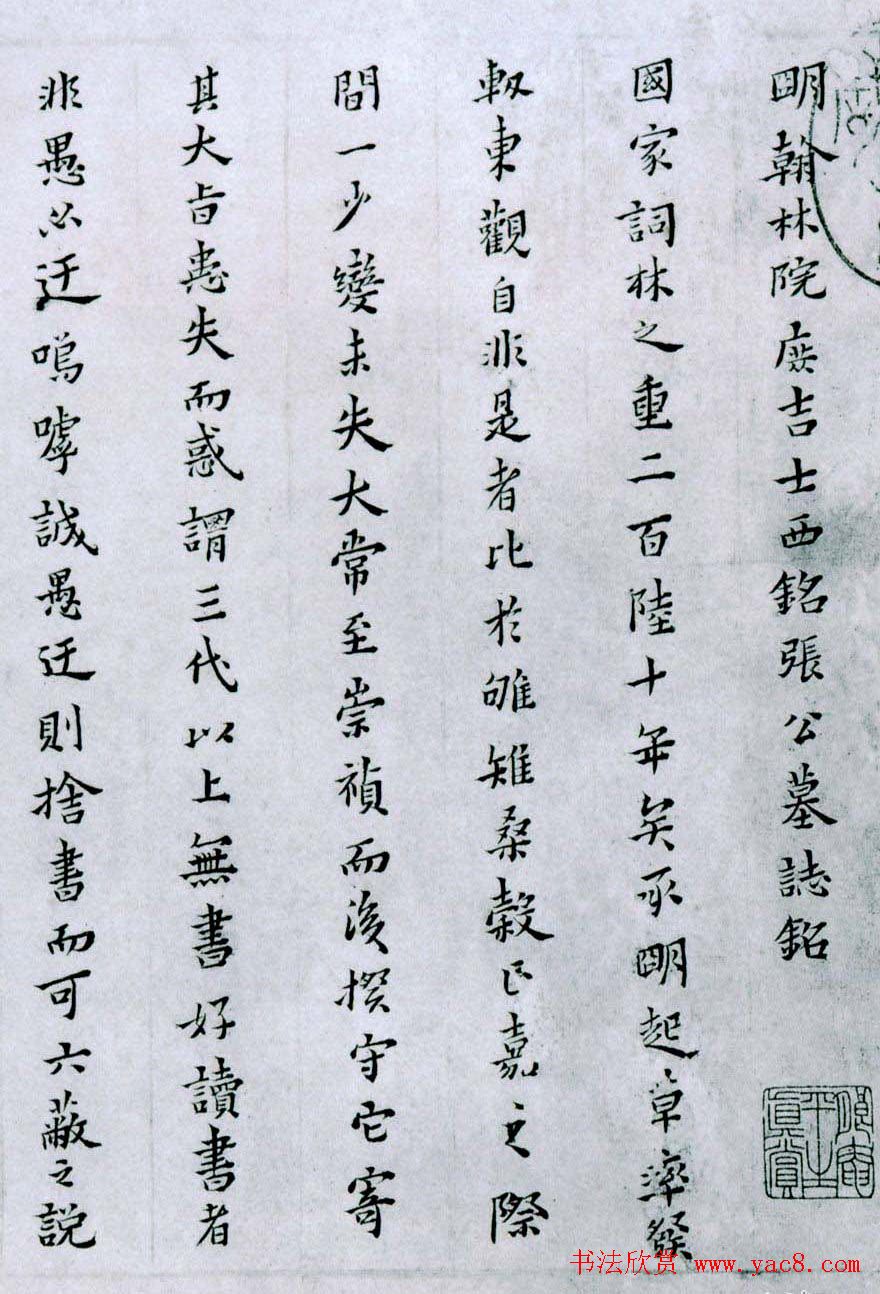 明翰林院庶吉士西銘張公墓誌銘
國家詞林之重二百陸十年矣承明起草率發
軔東觀自非是者比於雊雉桑穀正嘉之際
間一少變未失大常至崇禎而後揆守它寄
其大旨患失而惑謂三代以上無書好讀書者
非愚必迂嗚嘑誠愚迂則捨書而可六蔽之説
真賞
书法欣赏 www.yac8.com